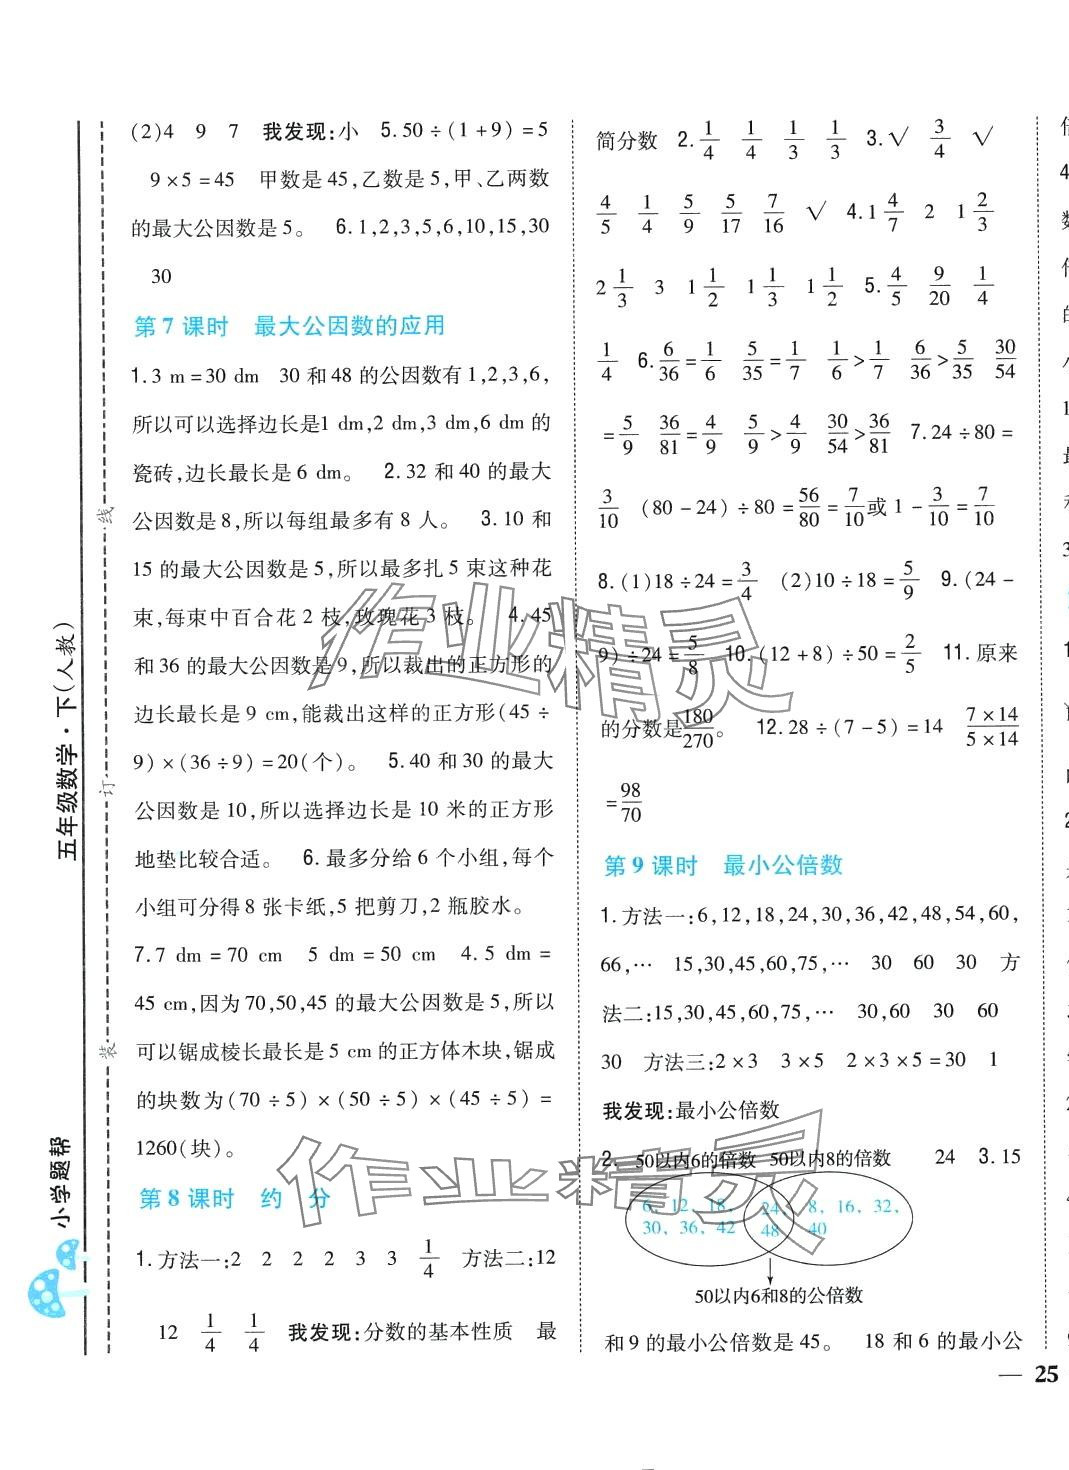 (2)4 9 7 我发现:小 5.50÷(1+9)=5
9×5=45 甲数是45,乙数是5,甲、乙两数
的最大公因数是5。 6.1,2,3,5,6,10,15,30
30
第7课时 最大公因数的应用
1.3 m=30 dm 30和48的公因数有1,2,3,6,
所以可以选择边长是1 dm,2 dm,3 dm,6 dm的
瓷砖,边长最长是6 dm。 2.32和40的最大
公因数是8,所以每组最多有8人。 3.10和
15的最大公因数是5,所以最多扎5束这种花
束,每束中百合花2枝,玫瑰花3枝。 4.45
和36的最大公因数是9,所以裁出的正方形的
边长最长是9 cm,能裁出这样的正方形(45÷
9)×(36÷9)=20(个)。 5.40和30的最大
公因数是10,所以选择边长是10米的正方形
地垫比较合适。 6.最多分给6个小组,每个
小组可分得8张卡纸,5把剪刀,2瓶胶水。
7.7 dm=70 cm 5 dm=50 cm 4.5 dm=
45 cm,因为70,50,45的最大公因数是5,所以
可以锯成棱长最长是5 cm的正方体木块,锯成
的块数为(70÷5)×(50÷5)×(45÷5)=
1260(块)。
第8课时 约 分
1.方法一:2 2 2 2 3 3 1/4 方法二:12
12 1/4 1/4 我发现:分数的基本性质 最
简分数 2.1/4 1/4 1/3 1/3 3.√ 3/4 √
4/5 1/4 5/9 5/17 7/16 √ 4.1 4/7 2 1 2/3
2 1/3 3 1 1/2 1 1/3 1 1/2 5.4/5 9/20 1/4
1/4 6.6/36=1/6 5/35=1/7 1/6>1/7 6/36>5/35 30/54
=5/9 36/81=4/9 5/9>4/9 30/54>36/81 7.24÷80=
3/10 (80-24)÷80=56/80=7/10或1-3/10=7/10
8.(1)18÷24=3/4 (2)10÷18=5/9 9.(24-
9)÷24=5/8 10.(12+8)÷50=2/5 11.原来
的分数是180/270。 12.28÷(7-5)=14 7×14/5×14
=98/70
第9课时 最小公倍数
1.方法一:6,12,18,24,30,36,42,48,54,60,
66,… 15,30,45,60,75,… 30 60 30 方
法二:15,30,45,60,75,… 30,60 30 60
30 方法三:2×3 3×5 2×3×5=30 1
我发现:最小公倍数
2. 50以内6的倍数 50以内8的倍数 24 3.15
6、12、18、 24、 8、16、32、
30、36、42 48 40
50以内6和8的公倍数
和9的最小公倍数是45。 18和6的最小公
— 25
五年级数学·下(人教)
小学题帮
线
订
装
作业精灵
作业精灵